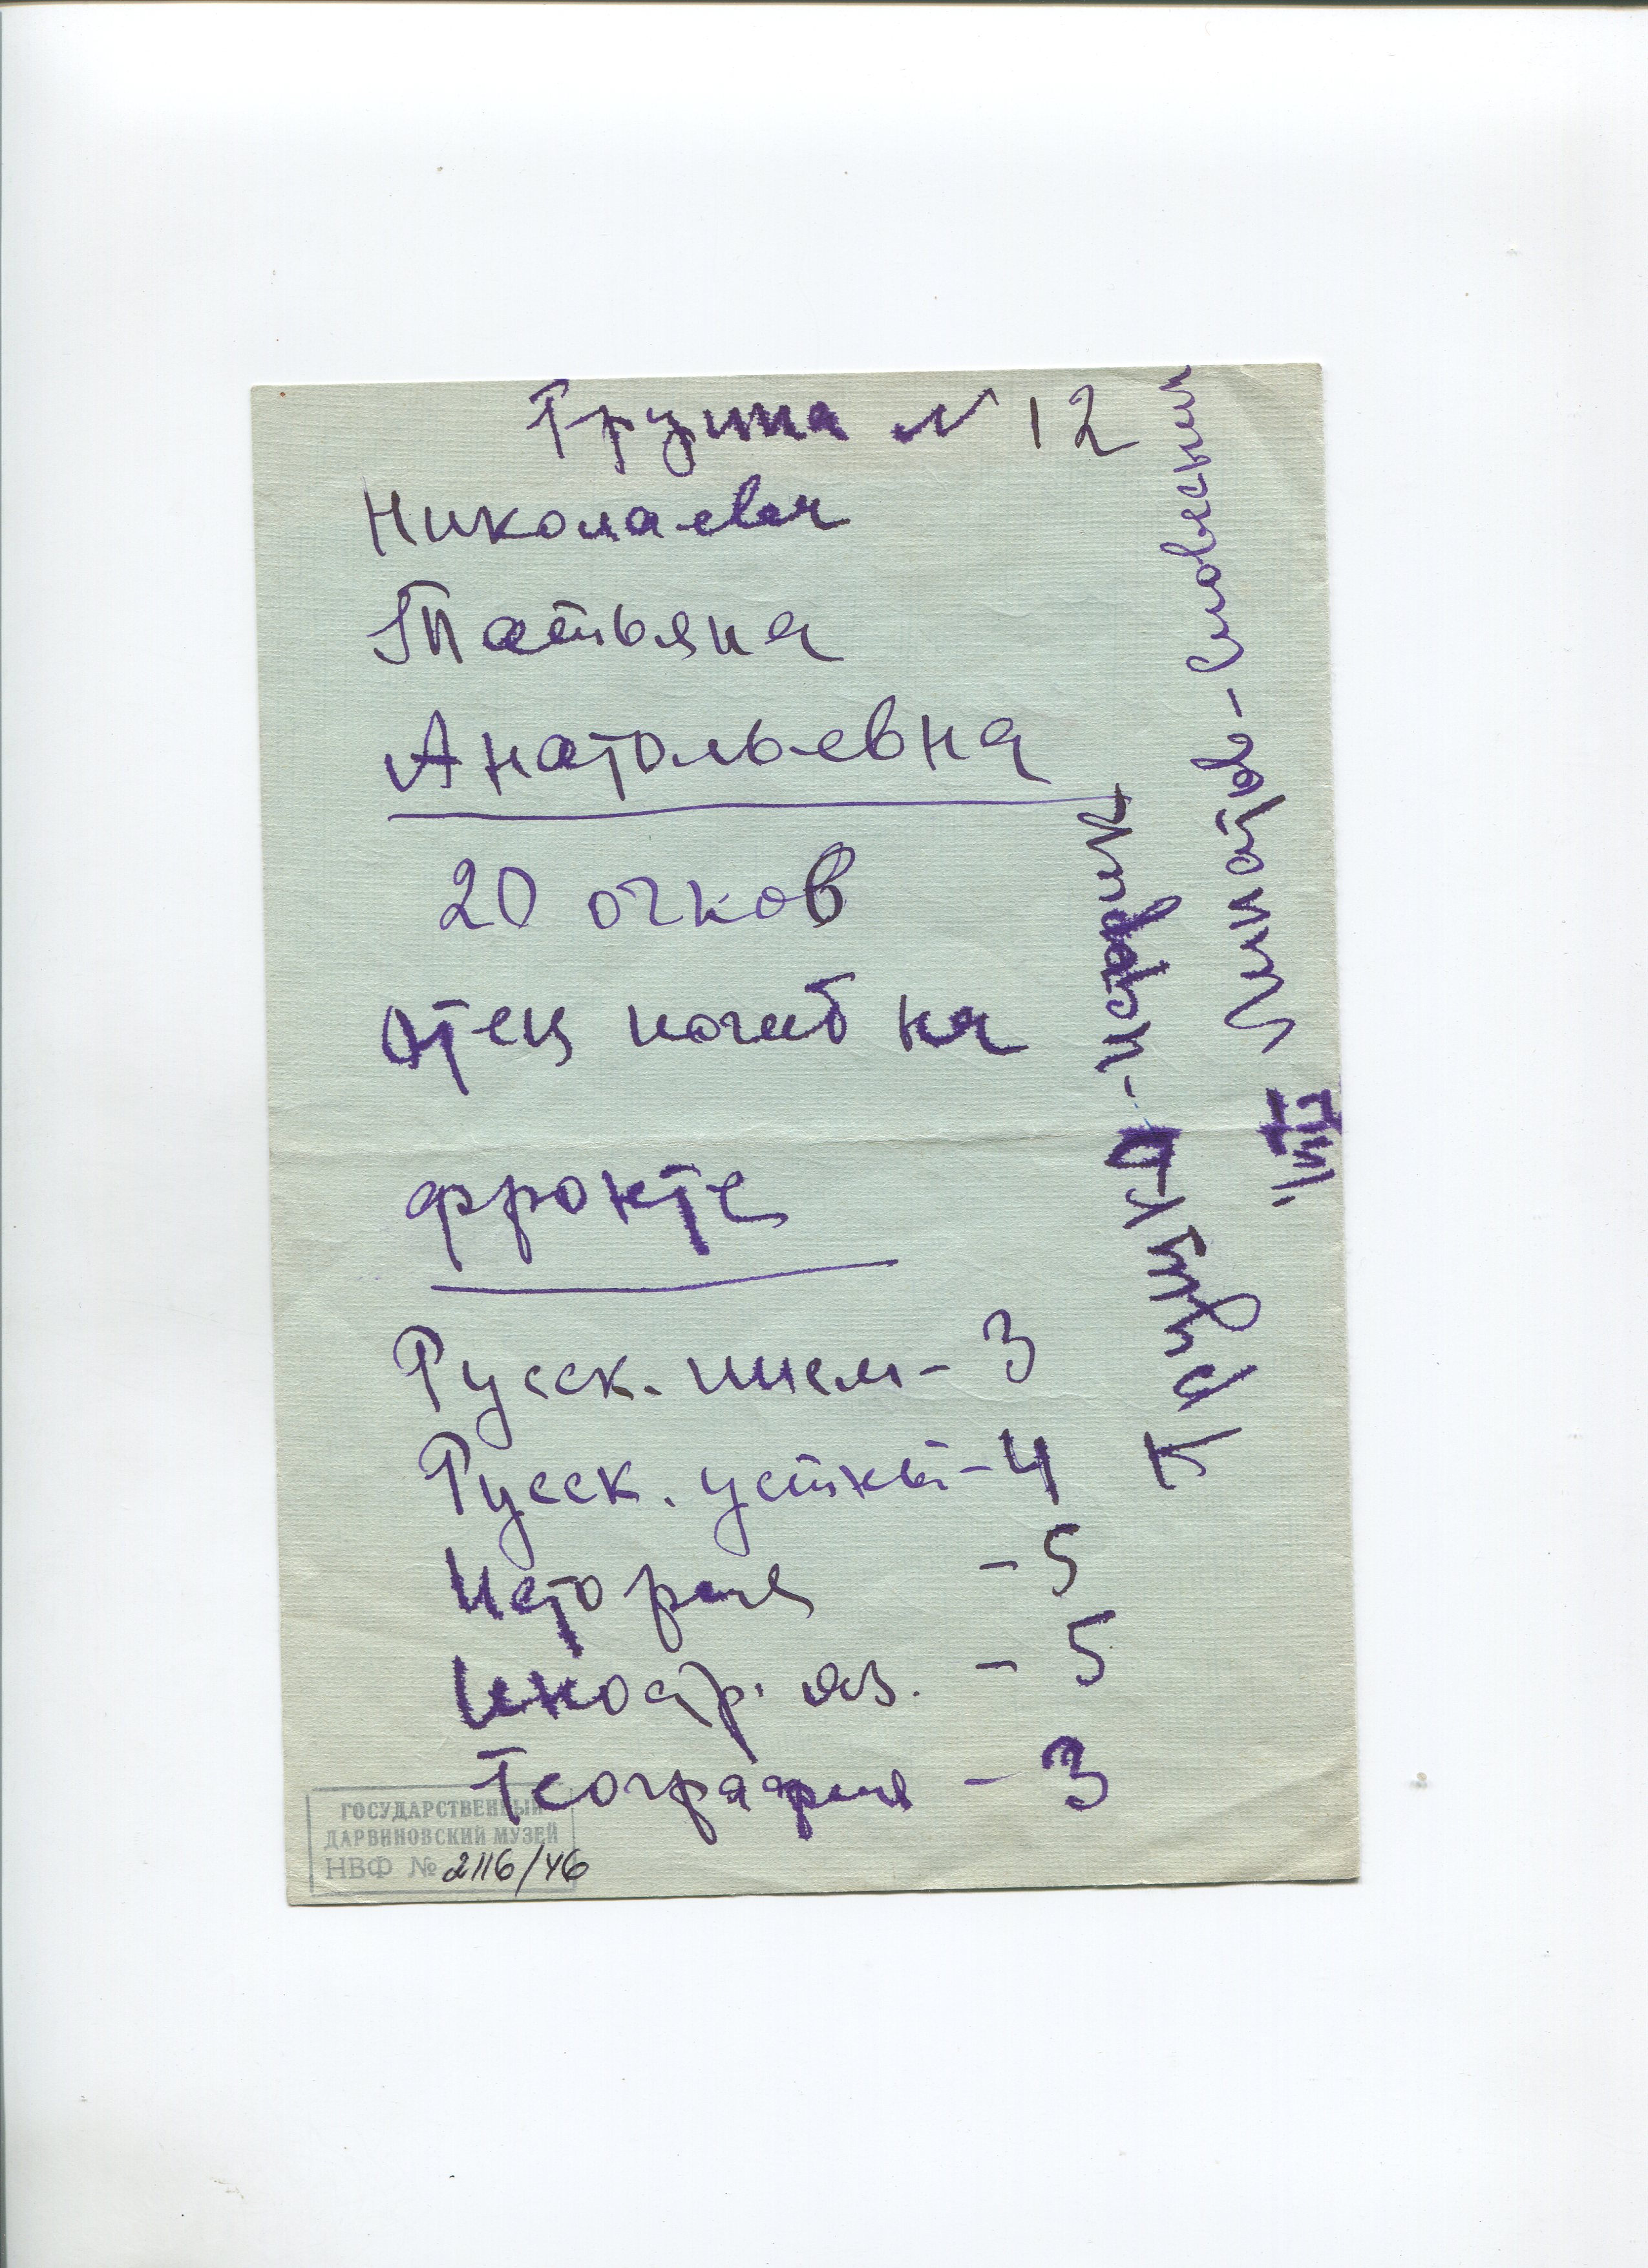 Группа № 12
Николаева
Татьяна
Анатольевна
20 очков
Отец погиб на
фронте
Русск. письм - 3
Русск. устный - 4
История - 5
Иностр. яз. - 5
География - 3
ГОСУДАРСТВЕННЫЙ
ДАРВИНОВСКИЙ МУЗЕЙ
НВФ № 2116/46